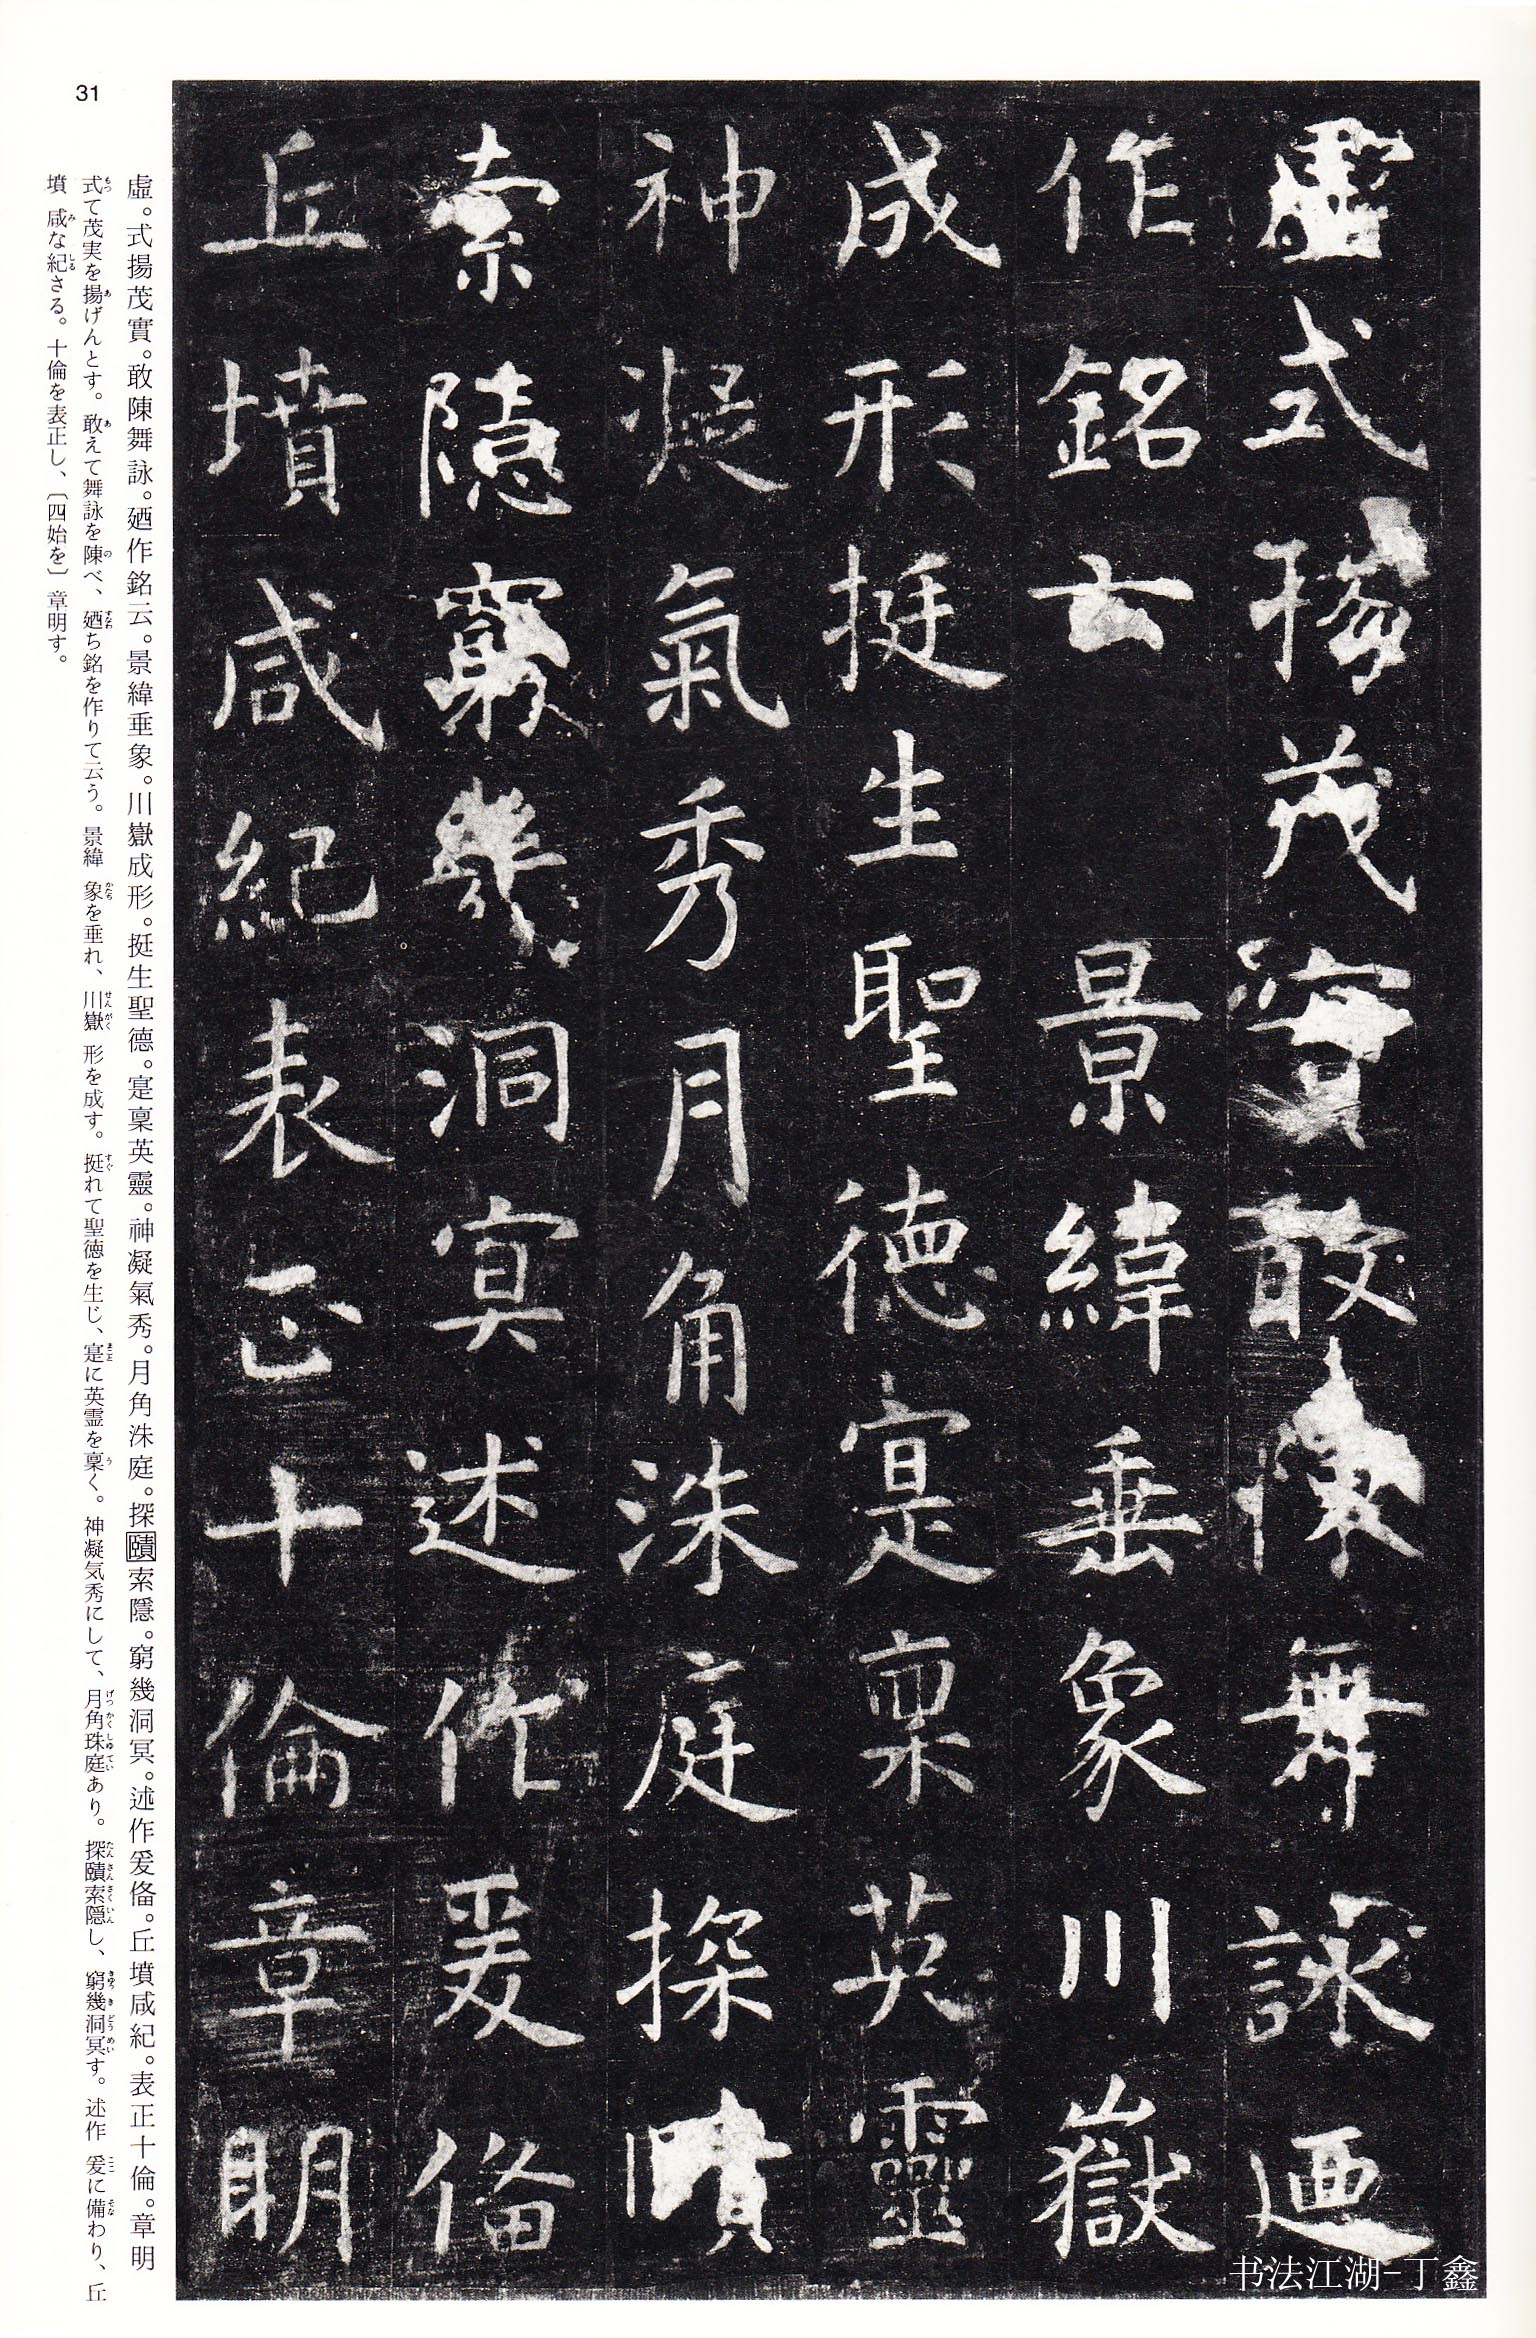 虛式揚茂實敢陳舞詠迺
作銘云 景緯垂象川嶽
成形挺生聖德寔稟英靈
神凝氣秀月角洙庭探賾
索隱窮幾洞冥述作爰俻
丘墳咸紀表正十倫章明
虛。式揚茂實。敢陳舞詠。迺作銘云。景緯垂象。川嶽成形。挺生聖德。寔稟英靈。神凝氣秀。月角洙庭。探賾索隱。窮幾洞冥。述作爰俻。丘墳咸紀。表正十倫。章明
式て茂実を揚げんとす。敢えて舞詠を陳べ、迺ち銘を作りて云う。景緯 象を垂れ、川嶽 形を成す。挺れて聖徳を生じ、寔に英霊を稟く。神凝気秀にして、月角珠庭あり。探賾索隠し、窮幾洞冥す。述作 爰に備わり、丘
墳 咸な紀さる。十倫を表正し、〔四始を〕章明す。
31
书法江湖-丁鑫